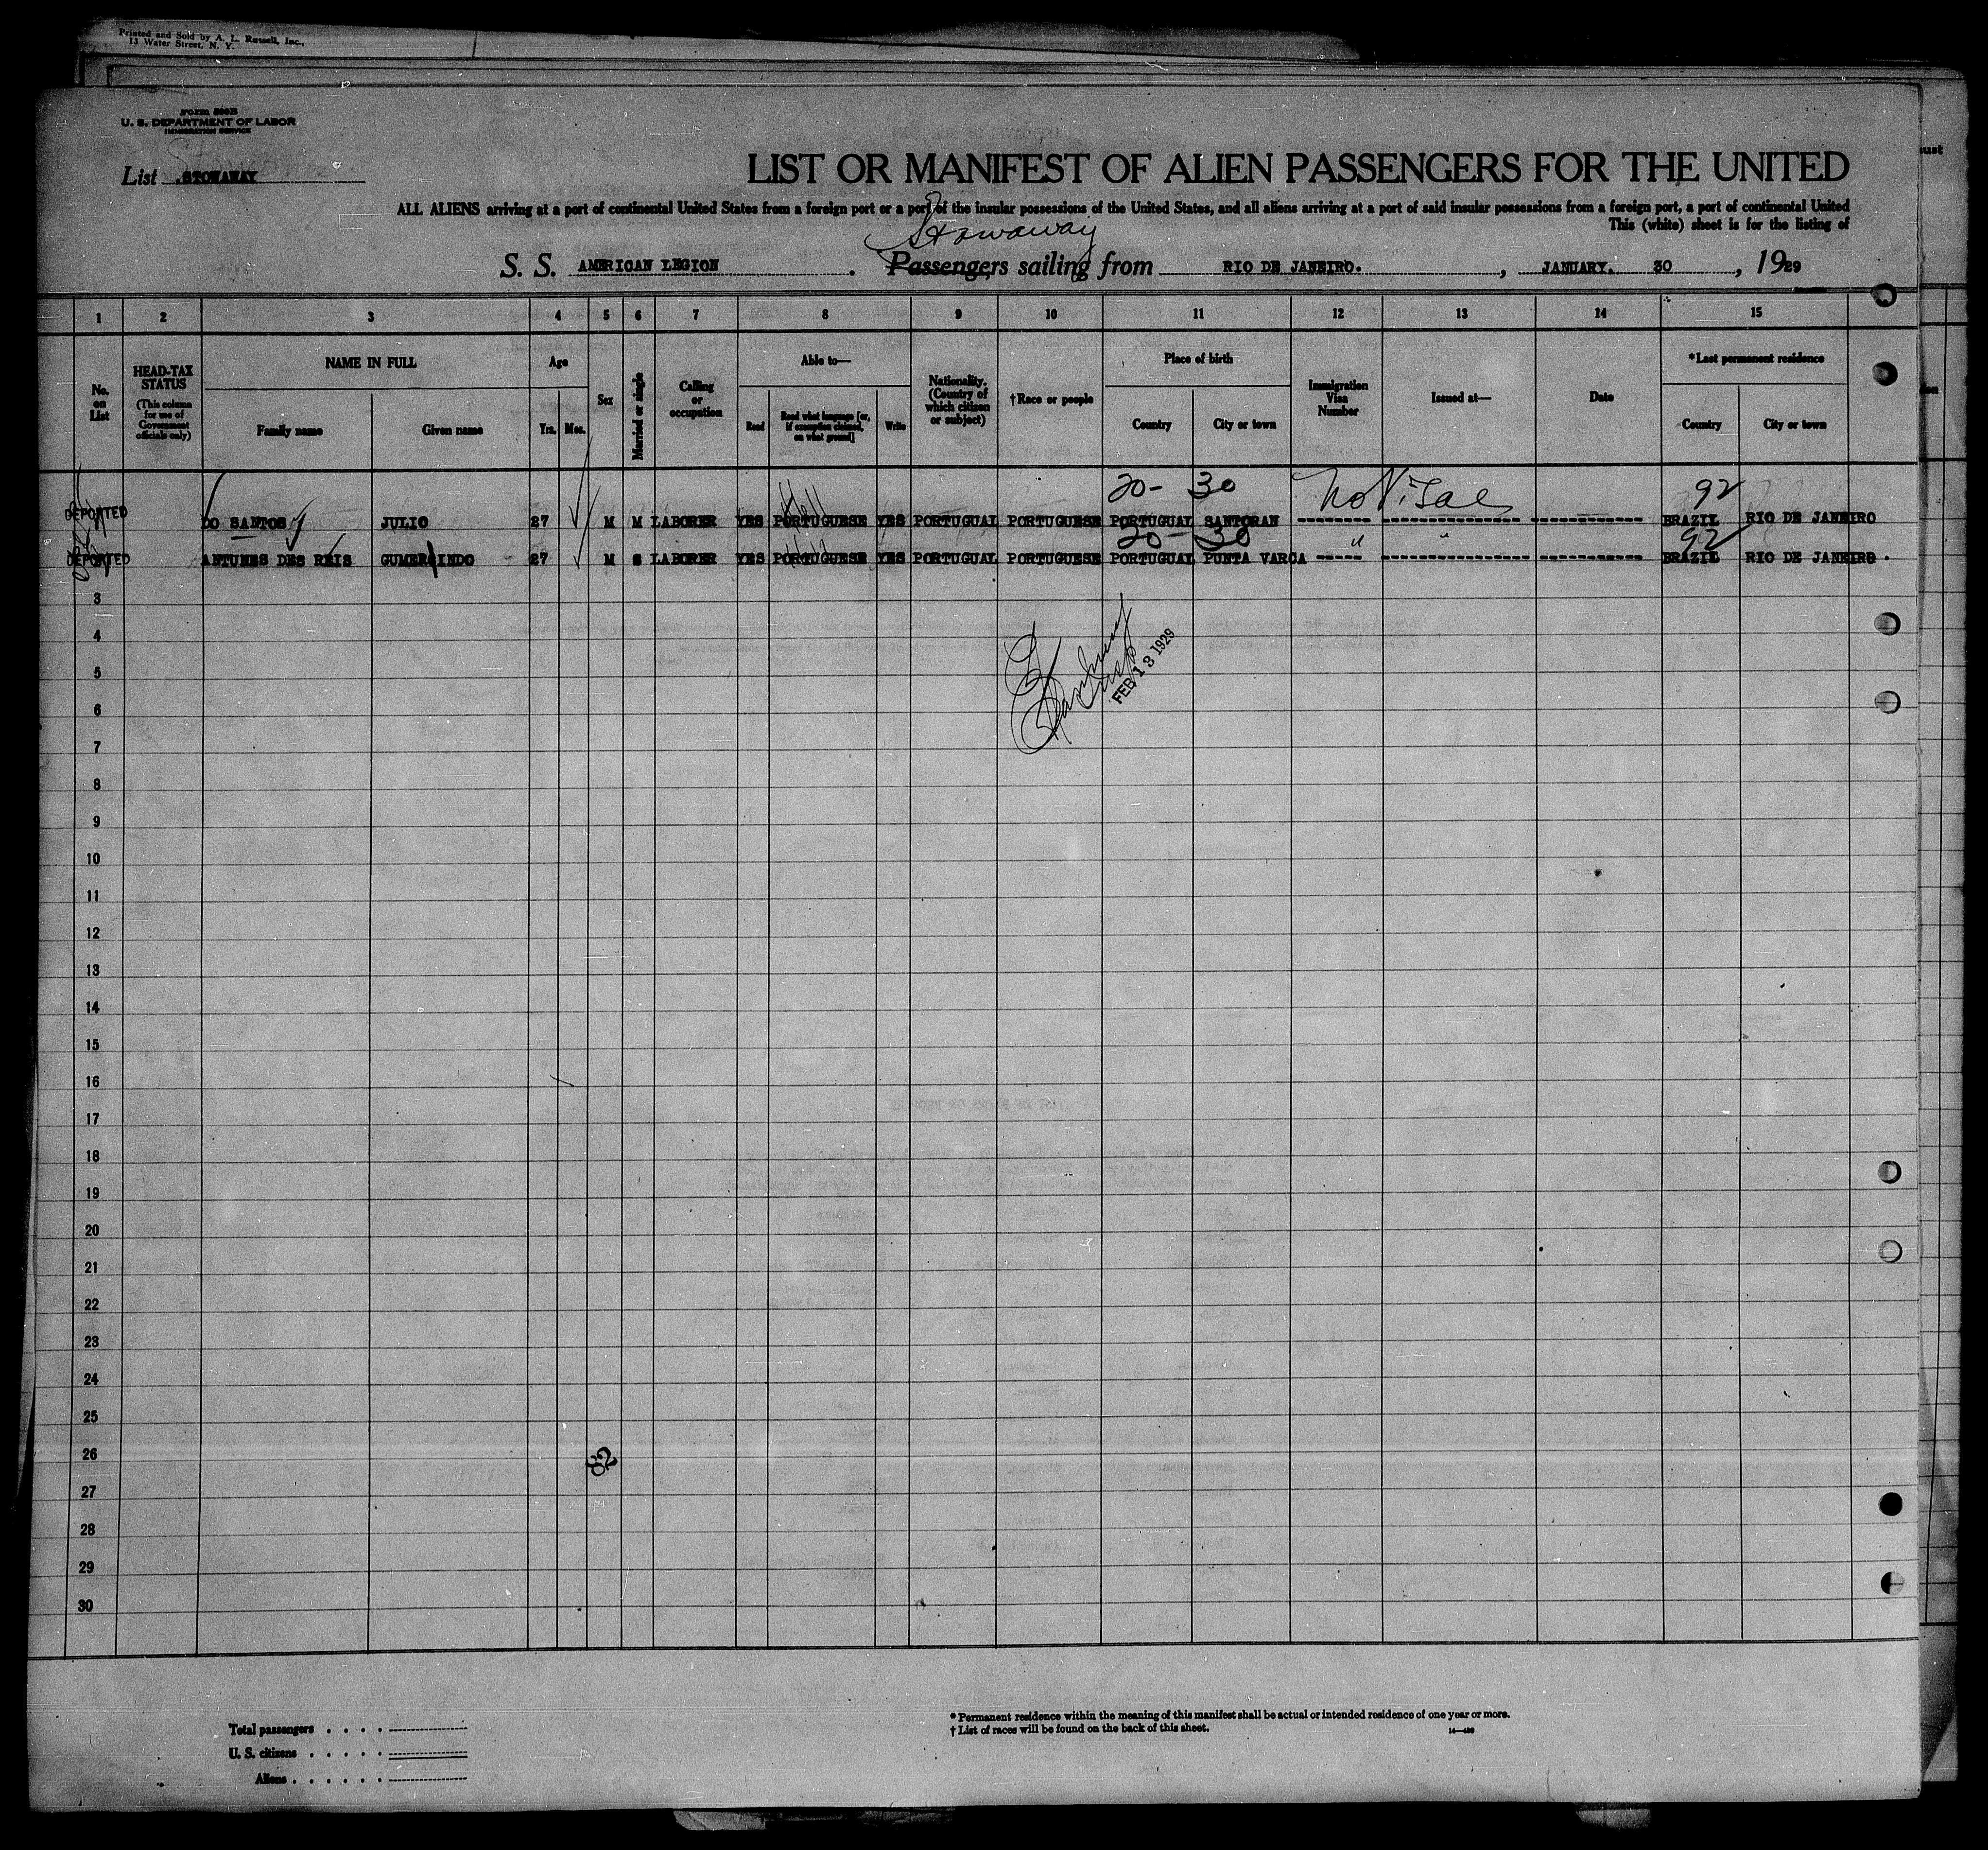 Printed and Sold by A. L. Russell, Inc.,
13 Water Street, N. Y.
Form 500B
U. S. DEPARTMENT OF LABOR
IMMIGRATION SERVICE
List STOWAWAY
LIST OR MANIFEST OF ALIEN PASSENGERS FOR THE UNITED
ALL ALIENS arriving at a port of continental United States from a foreign port or a port of the insular possessions of the United States, and all aliens arriving at a port of said insular possessions from a foreign port, a port of continental United
This (white) sheet is for the listing of
Stowaway
S. S. AMERICAN LEGION . Passengers sailing from RIO DE JANEIRO. , JANUARY. 30 , 1929
1 2 3 4 5 6 7 8 9 10 11 12 13 14 15
No. on List
HEAD-TAX STATUS (This column for use of Government officials only)
NAME IN FULL
Family name Given name
Age
Yrs. Mos.
Sex
Married or single
Calling or occupation
Able to—
Read Read what language [or, if exemption claimed, on what ground] Write
Nationality. (Country of which citizen or subject)
†Race or people
Place of birth
Country City or town
Immigration Visa Number
Issued at—
Date
*Last permanent residence
Country City or town
20- 30 No Visae 92
DEPORTED DO SANTOS JULIO 27 M M LABORER YES PORTUGUESE YES PORTUGUAL PORTUGUESE PORTUGUAL SANTORAN BRAZIL RIO DE JANEIRO
20- 30 " " 92
DEPORTED ANTUNES DES REIS GUMERSINDO 27 M S LABORER YES PORTUGUESE YES PORTUGUAL PORTUGUESE PORTUGUAL PUNTA VARCA BRAZIL RIO DE JANEIRO .
3
4
5
FEB 13 1929
6
7
8
9
10
11
12
13
14
15
16
17
18
19
20
21
22
23
24
25
26
27
28
29
30
Total passengers
U. S. citizens
Aliens
* Permanent residence within the meaning of this manifest shall be actual or intended residence of one year or more.
† List of races will be found on the back of this sheet.